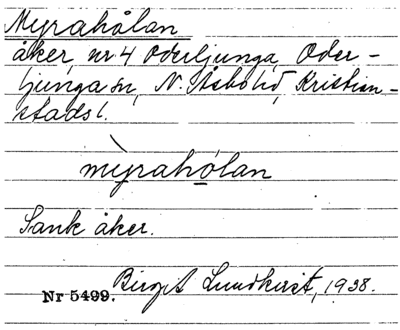 Myrahålan
åker, nr 4 Oderljunga, Oder-
ljunga sn, N. Åsbo hd, Kristian-
stads l.
mỳrahólan
Sank åker.
Nr 5499. Birgit Lundkvist, 1938.